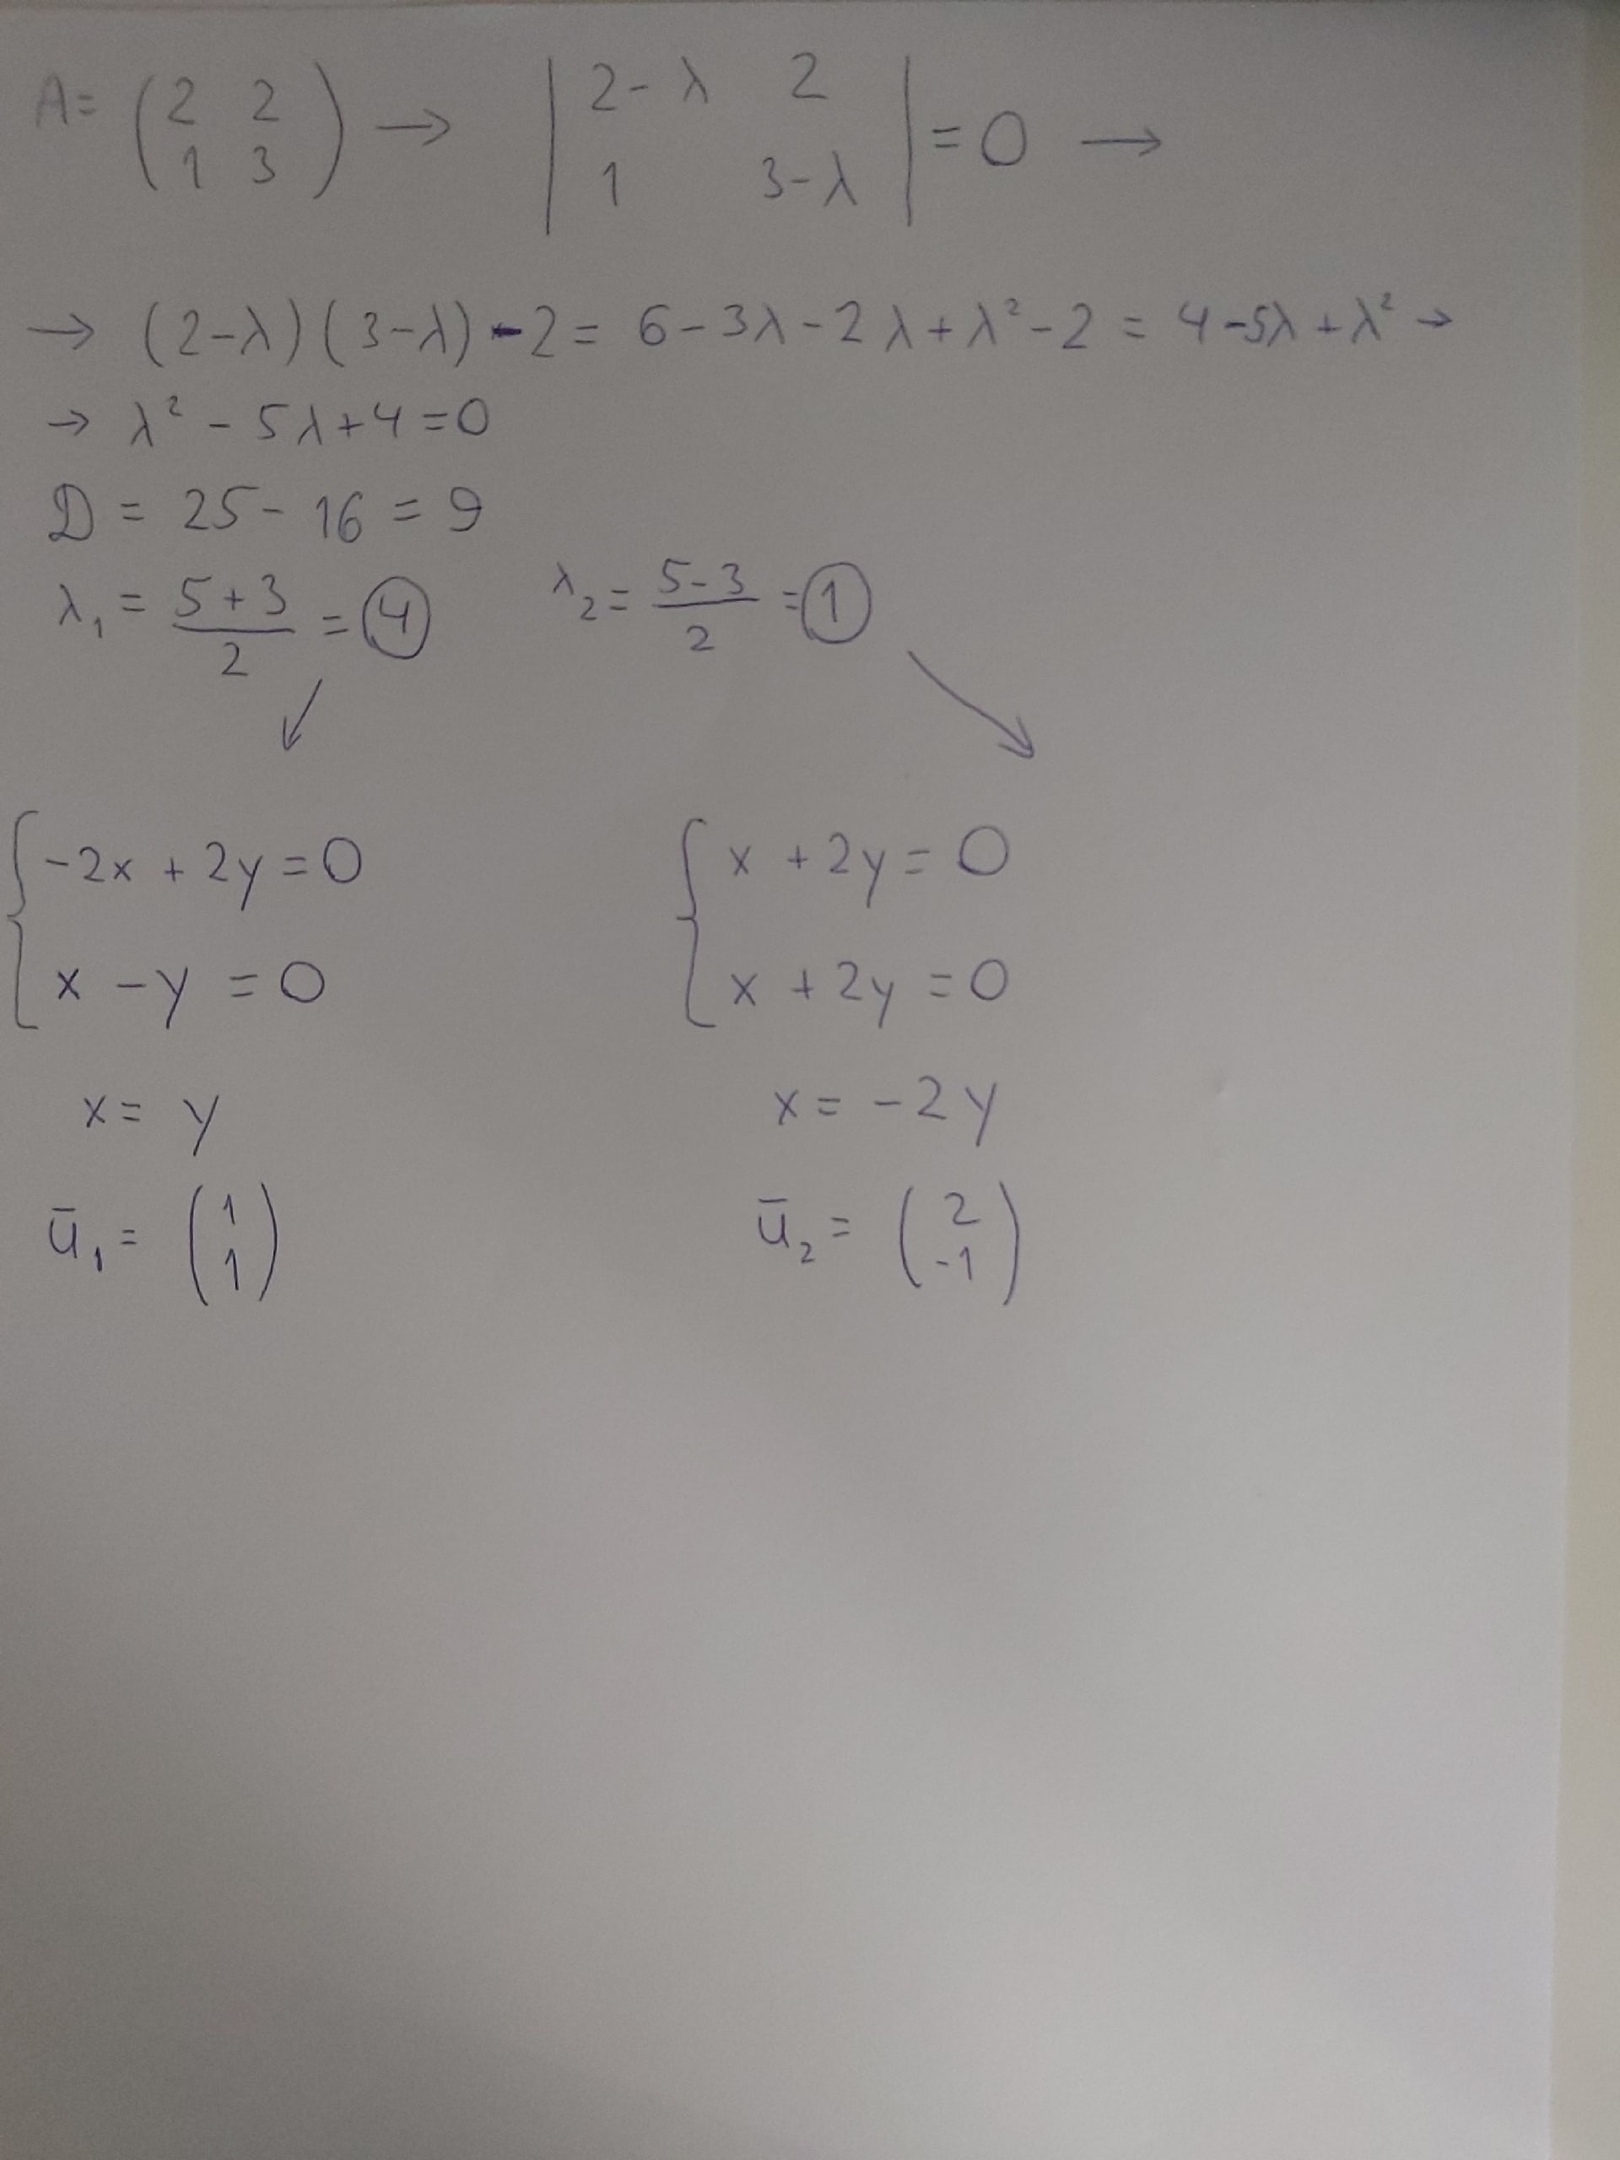 A = ( 2 2 ; 1 3 ) → | 2-λ 2 ; 1 3-λ | = 0 →
→ (2-λ)(3-λ)-2 = 6-3λ-2λ+λ²-2 = 4-5λ+λ² →
→ λ² - 5λ+4 =0
D = 25- 16 = 9
λ₁ = (5+3)/2 = 4 λ₂ = (5-3)/2 = 1
↙ ↘
{ -2x + 2y = 0 { x + 2y = 0
x - y = 0 x + 2y = 0
x = y x = -2y
ū₁ = ( 1 ; 1 ) ū₂ = ( 2 ; -1 )